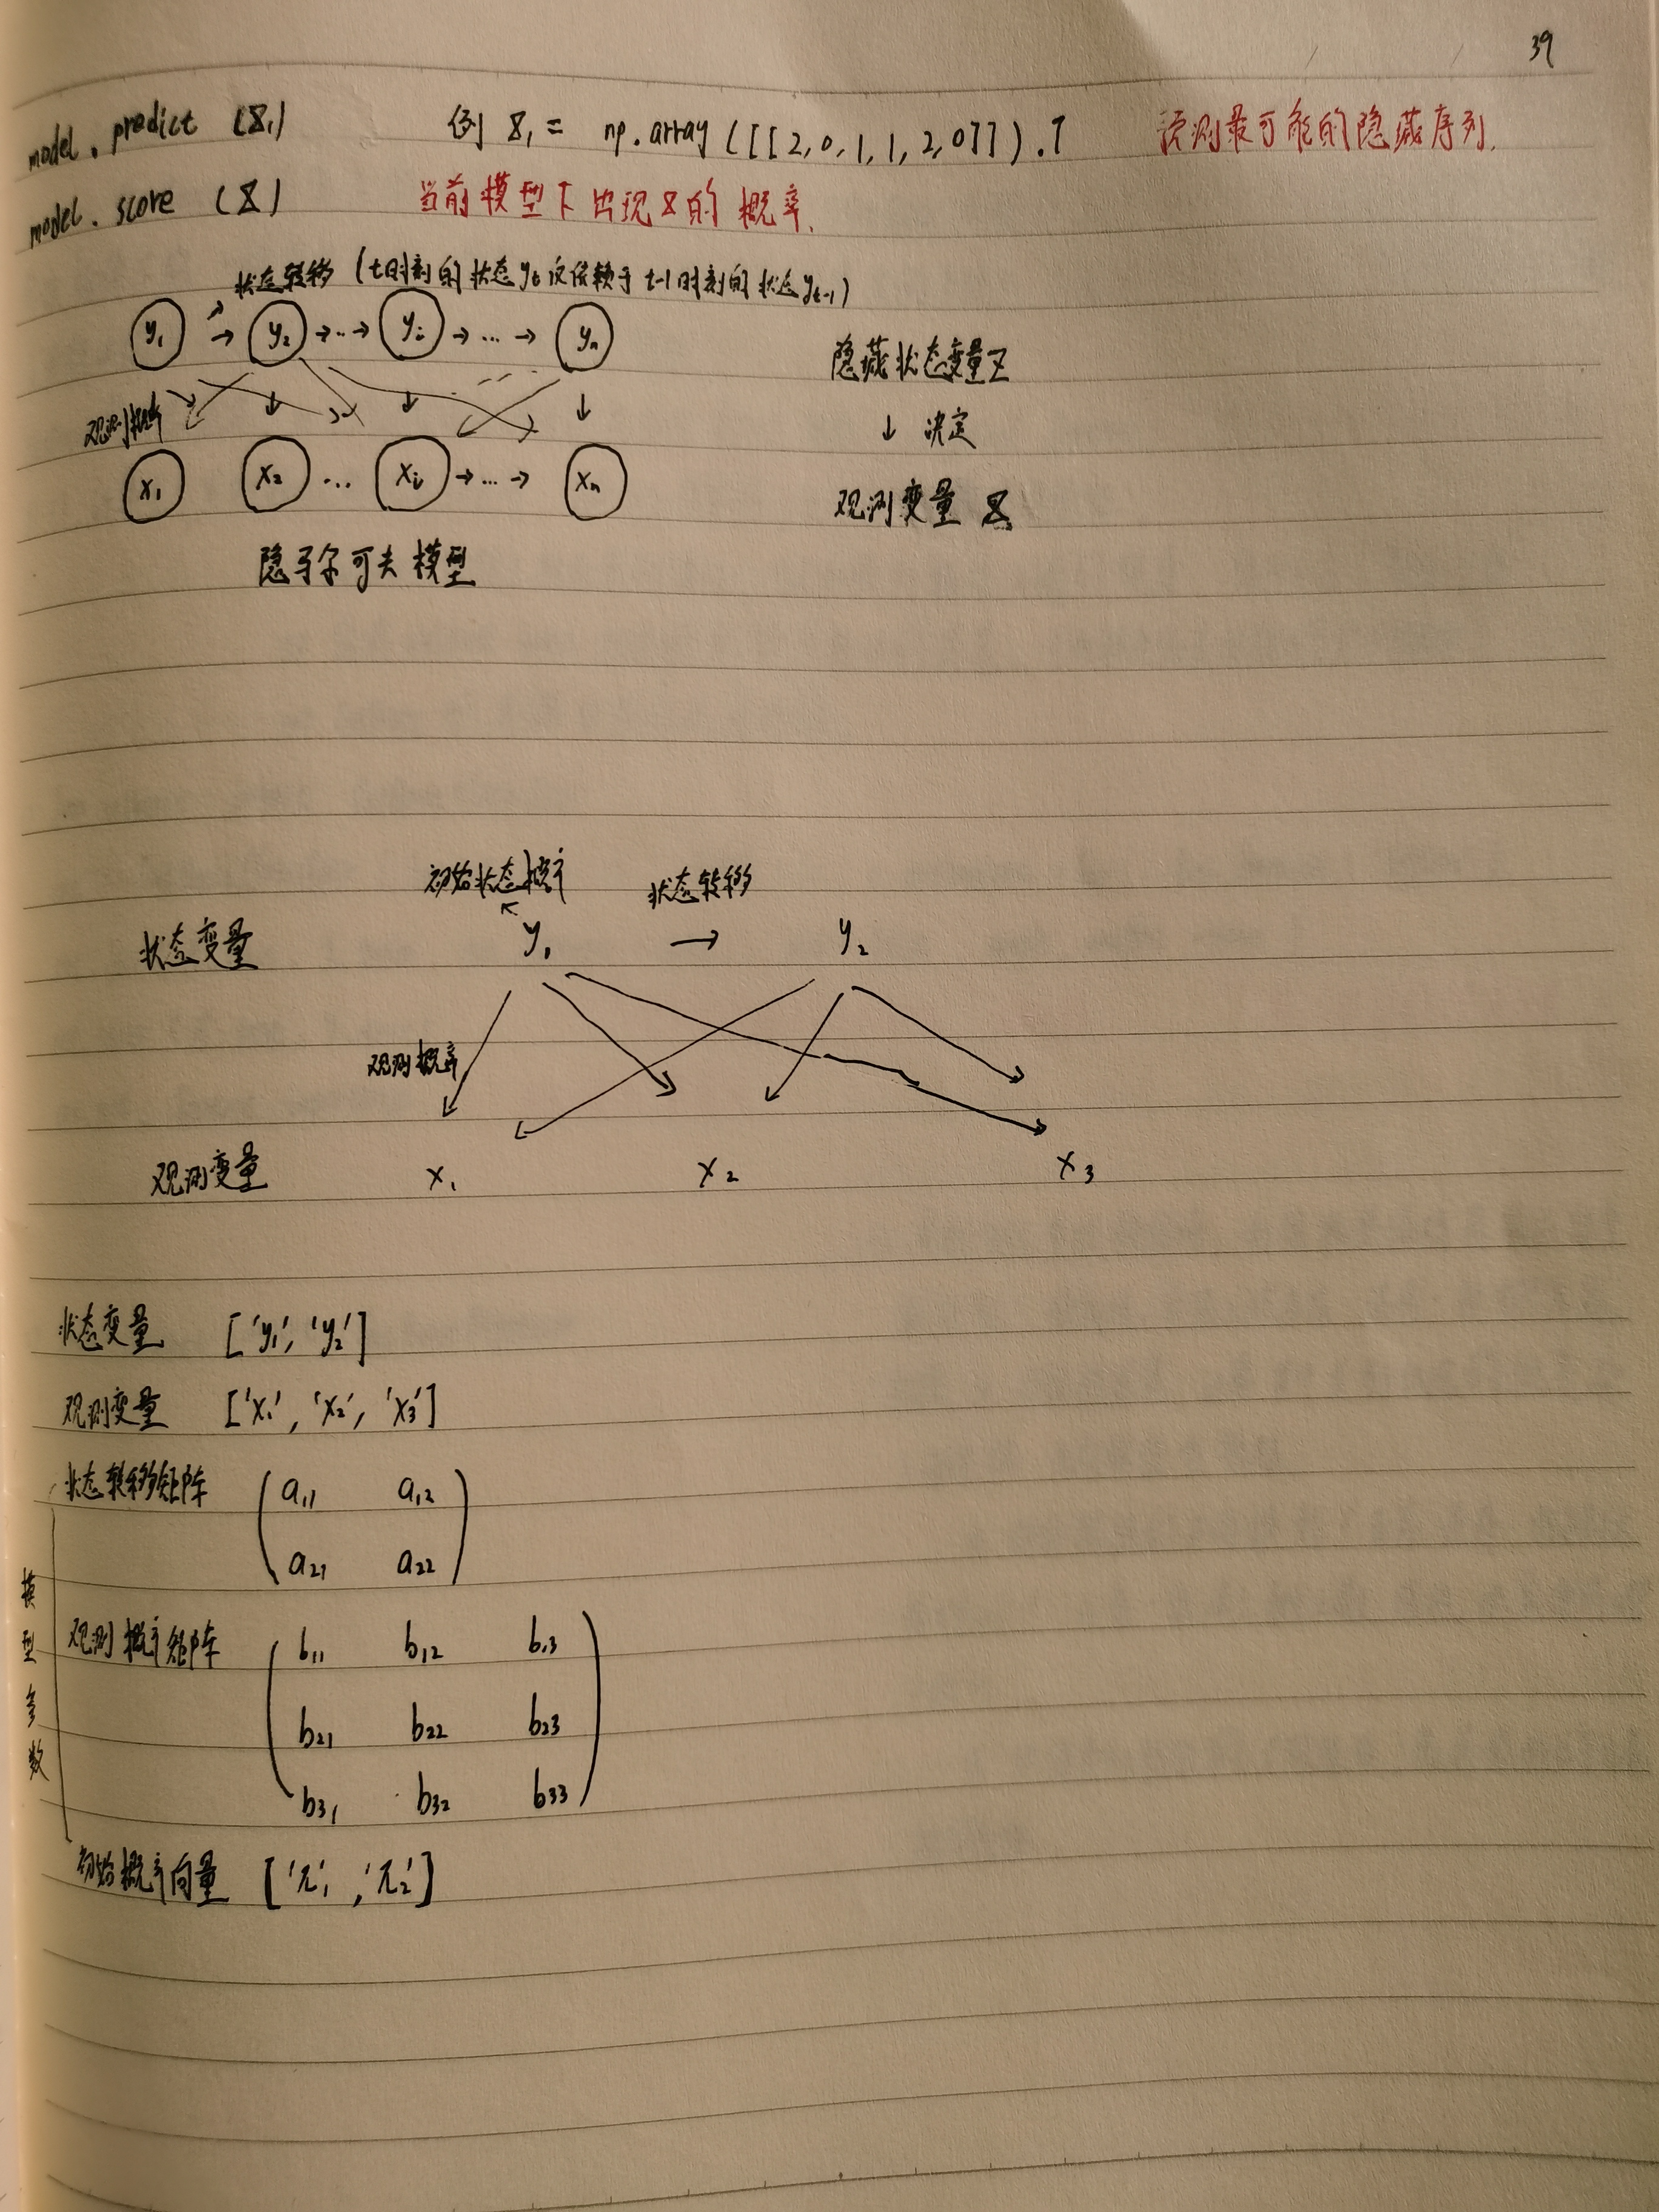 39
model.predict (X₁) 例 X₁ = np.array([[2,0,1,1,2,0]]).T 预测最可能的隐藏序列.
model.score (X) 当前模型下出现X的概率.
状态转移 (t时刻的状态yt仅依赖于t-1时刻的状态yt-1)
y₁ → y₂ →..→ yᵢ →...→ yₙ 隐藏状态变量Z
观测概率 ↓ 决定
x₁ x₂ ... xᵢ →...→ xₙ 观测变量 X
隐马尔可夫模型
初始状态概率 状态转移
状态变量 y₁ → y₂
观测概率
观测变量 x₁ x₂ x₃
状态变量 ['y₁', 'y₂']
观测变量 ['x₁', 'x₂', 'x₃']
状态转移矩阵 a₁₁ a₁₂
a₂₁ a₂₂
模型参数
观测概率矩阵 b₁₁ b₁₂ b₁₃
b₂₁ b₂₂ b₂₃
b₃₁ b₃₂ b₃₃
初始概率向量 ['π₁', 'π₂']